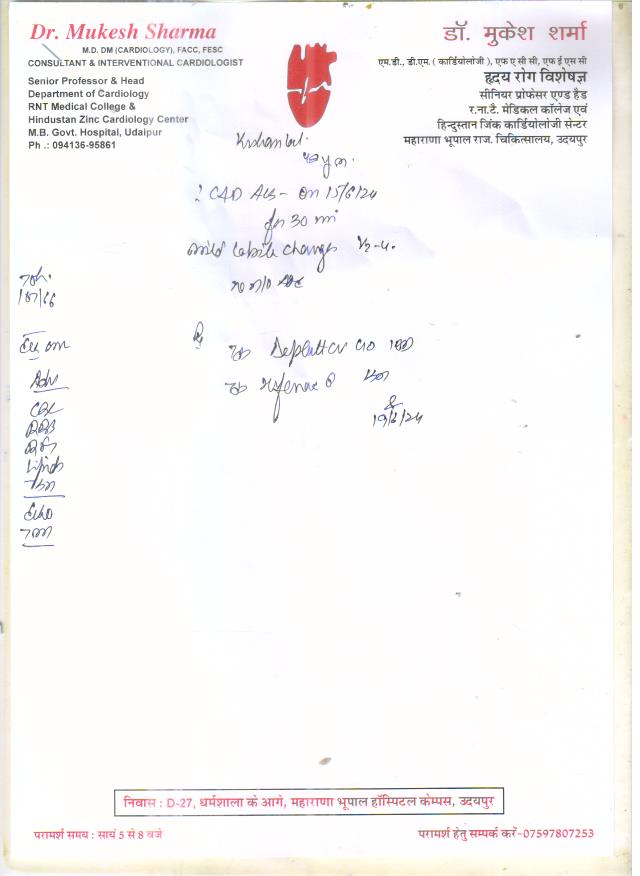 Dr. Mukesh Sharma
M.D. DM (CARDIOLOGY), FACC, FESC
CONSULTANT & INTERVENTIONAL CARDIOLOGIST
Senior Professor & Head
Department of Cardiology
RNT Medical College &
Hindustan Zinc Cardiology Center
M.B. Govt. Hospital, Udaipur
Ph .: 094136-95861
डॉ. मुकेश शर्मा
एम.डी., डी.एम. ( कार्डियोलॉजी ), एफ ए सी सी, एफ ई एस सी
हृदय रोग विशेषज्ञ
सीनियर प्रोफेसर एण्ड हैड
र.ना.टै. मेडिकल कॉलेज एवं
हिन्दुस्तान जिंक कार्डियोलॉजी सेन्टर
महाराणा भूपाल राज. चिकित्सालय, उदयपुर
? CAD ACS - on 15/6/24
for 30 min
mild labile changes V2-4.
107/66
Adv
CBC
RBS
RFT
Lipids
Echo
TMT
19/6/24
निवास : D-27, धर्मशाला के आगे, महाराणा भूपाल हॉस्पिटल केम्पस, उदयपुर
परामर्श समय : सायं 5 से 8 बजे
परामर्श हेतु सम्पर्क करें-07597807253